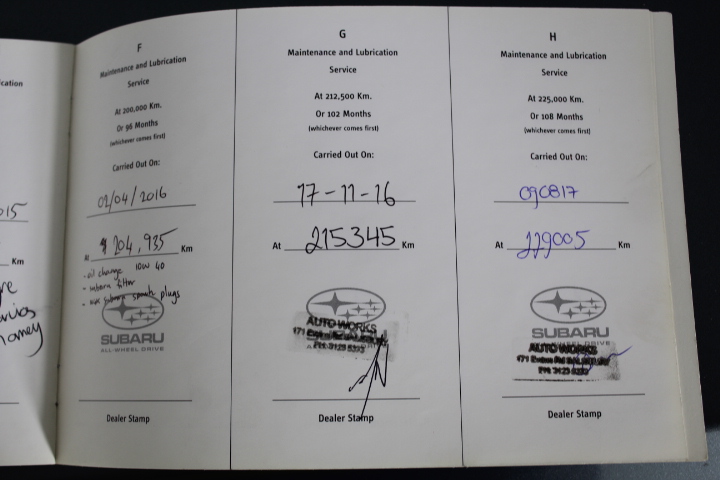 ication
015
Km
F
Maintenance and Lubrication
Service
At 200,000 Km.
Or 96 Months
(whichever comes first)
Carried Out On:
02/04/2016
At 204,935 Km
- oil change 10W 40
- filter
- spark plugs
SUBARU
ALL-WHEEL DRIVE
Dealer Stamp
G
Maintenance and Lubrication
Service
At 212,500 Km.
Or 102 Months
(whichever comes first)
Carried Out On:
17-11-16
At 215345 Km
AUTO WORKS
Dealer Stamp
H
Maintenance and Lubrication
Service
At 225,000 Km.
Or 108 Months
(whichever comes first)
Carried Out On:
090817
At 229005 Km
SUBARU
AUTO WORKS
Dealer Stamp